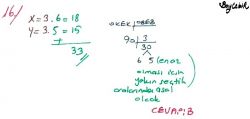 16)
x = 3.6 = 18
y = 3.5 = 15
+
33
OKEK OBEB
90 | 3
30
6 5 (en az
olması için
yakın seçtik
aralarında asal
olacak
CEVAP: B